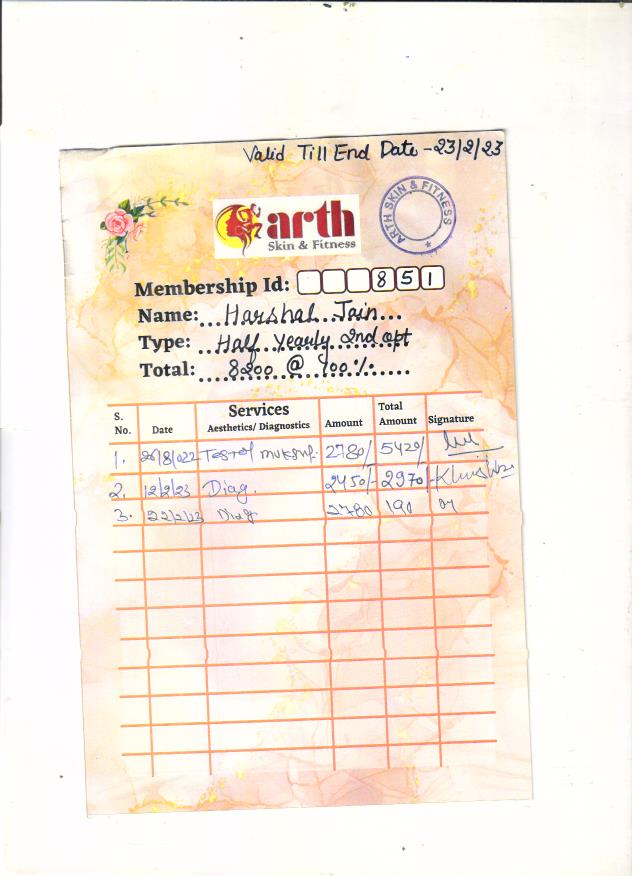 Valid Till End Date - 23/2/23
arth
Skin & Fitness
ARTH SKIN & FITNESS
Membership Id: 851
Name: Harshal Jain
Type: Half Yearly 2nd opt
Total: 8200 @ 100%
S. No. Date Services Aesthetics/ Diagnostics Amount Total Amount Signature
1. 20/8/022 Test of 2780/ 5420/
2. 12/2/23 Diag. 2450/- 2970/-
3. 22/2/23 Diag 2780 190